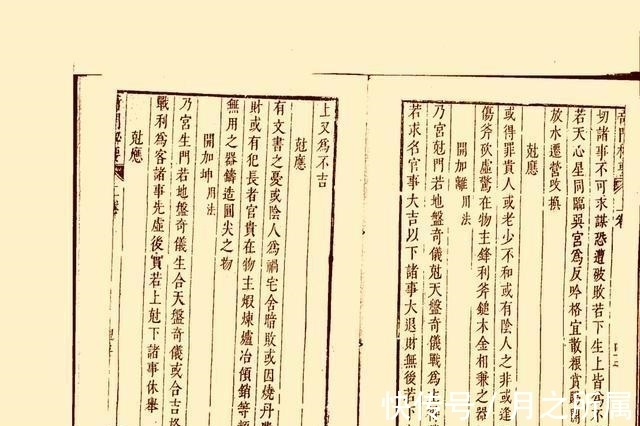 切諸事不可求謀恐遭破敗若下生上皆爲不
若天心星同臨巽宮爲反吟格宜散根賞
放水遷營攻損
尅應
或得罪貴人或老少不和或有陰人之非或逢
傷斧砍虛驚在物主鋒利斧鎚木金相兼之器
開加離用法
乃宮尅門若地盤奇儀尅天盤奇儀戰爲
若求名官事大吉以下諸事大退財無後若
上又爲不吉
尅應
有文書之憂或陰人爲禍宅舍暗敗或因燒丹
財或有犯長者官貴在物主煅煉爐冶傾銷等
無用之器鑄造圓尖之物
開加坤用法
乃宮生門若地盤奇儀生合天盤奇儀或合吉格
戰利爲客諸事先虛後實若上尅下諸事休舉
快傳号
月之
属